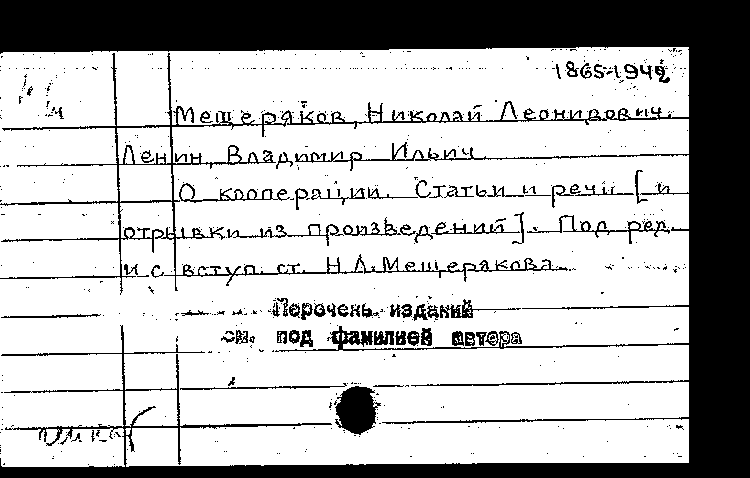 1865-1942
Мещеряков, Николай Леонидович.
Ленин, Владимир Ильич
О кооперации. Статьи и речи [и
отрывки из произведений]. Под ред.
и с вступ. ст. Н.Л. Мещерякова
Перечень изданий
см. под фамилией автора